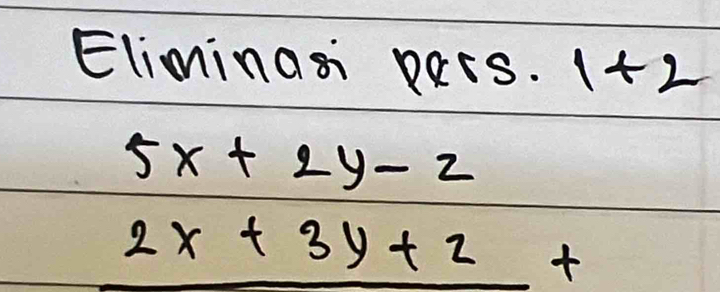 Eliminasi pers. 1+2
5x + 2y - z
2x + 3y + z +